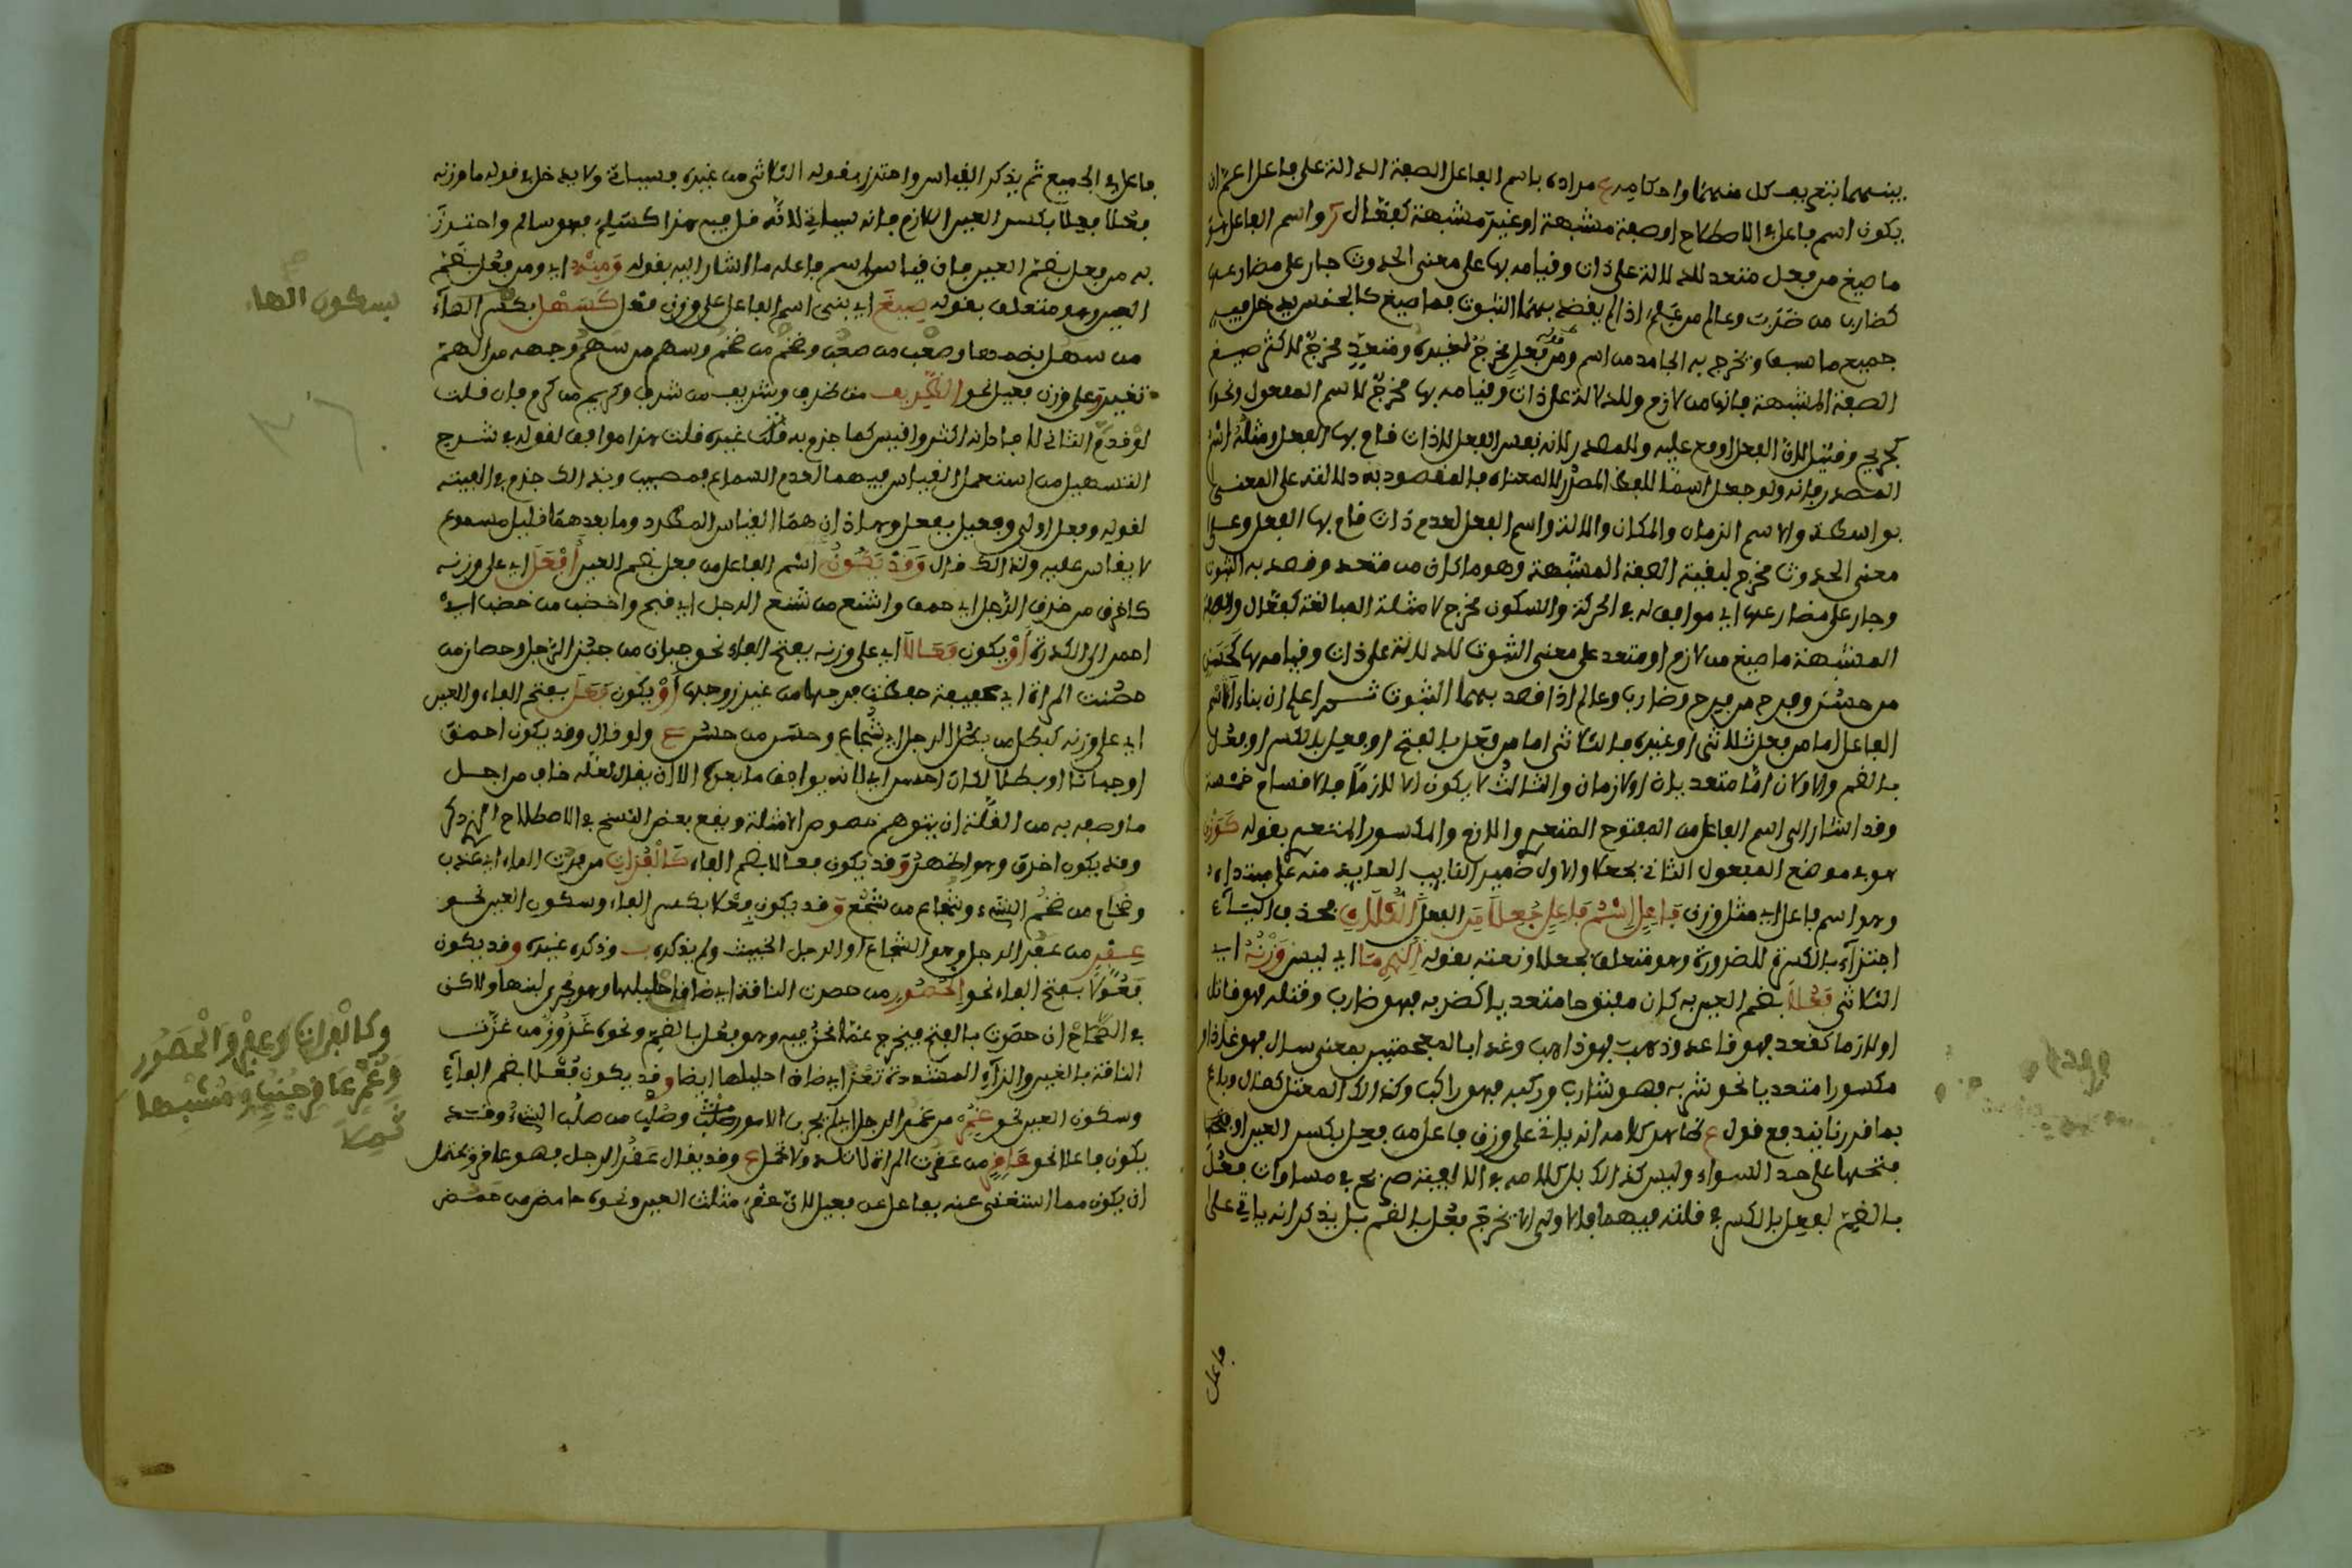 بينهما بتعريف كل منهما واحكامه ع مراده باسم الفاعل الصفة الدالة على فاعل اعم ان
يكون اسم فاعل في الاصطلاح او صفة مشبهة او غير مشبهة كفعّال واسم الفاعل
ما صيغ من فعل متعد للدلالة على ذات وقيامه بها على معنى الحدوث جار على مضارعه
كضارب من ضرب وعالم من علم اذا لم يقصد بهما الثبوت فما صيغ كالجنس يدخل فيه
جميع ما سبق ويخرج به الجامد من اسم ومن فعل مخرج لغيره ومتعد مخرج لاكثر صيغ
الصفة المشبهة فانها من لازم وللدلالة على ذات وقيامه بها مخرج لاسم المفعول ونحو
جريح وقتيل لان الفعل اوقع عليه وللمصدر لانه نفس الفعل لا ذات قام بها الفعل ومثله اسم
المصدر فانه ولو جعل اسما للفظ المصدر لا لمعناه فالمقصود به دلالته على المعنى
بواسطة ولاسم الزمان والمكان والالة واسم الفعل لعدم ذات قام بها الفعل وعلى
معنى الحدوث مخرج لبقية الصفة المشبهة وهو ما كان من متعد وقصد به الثبوت
وجار على مضارعه اي موافق له في الحركة والسكون مخرج لامثلة المبالغة كفعّال والصفة
المشبهة ما صيغ من لازم او متعد على معنى الثبوت للدلالة على ذات وقيامه بها كحسن
من حسن وفرح من فرح وضارب وعالم اذا قصد بهما الثبوت ثم اعلم ان بناء اسم
الفاعل اما من فعل ثلاثي او غيره فالثلاثي اما من فعل بالفتح او فعل بالكسر او فعل
بالضم والاولان اما متعديان او لازمان والثالث لا يكون الا لازما فالاقسام خمسة
وقد اشار الى اسم الفاعل من المفتوح المتعدي واللازم والمكسور المتعدي بقوله كوزن
هو في موضع المفعول الثاني بجعلا والاول ضمير النايب العايد منه على مبتداه
وهو اسم فاعل اي مثل وزن فاعل اسم فاعل جعلا من الفعل الثلاثي بحذف الياء
اجتزاء بالكسرة للضرورة وهو متعلق بجعلا ونعته بقوله الذي ما اي ليس وزنه اي
الثلاثي فعلا بضم العين به كان مفتوحا متعديا كضربه فهو ضارب وقتله فهو قاتل
او لازما كقعد فهو قاعد وذهب فهو ذاهب وغذا بالمعجمتين بمعنى سال فهو غاذ او
مكسورا متعديا نحو شربه فهو شارب وركبه فهو راكب وكذلك المعتل كقال وباع
بما قررنا يندفع قول ع ظاهر كلامه انه ياتي على وزن فاعل من فعل بكسر العين او
فتحها على حد السواء وليس كذلك بل كلامه في الالفية صريح في مساواة فعل
بالضم لفعل بالكسر في قلته فيهما فالاولى ان يخرج فعل بالضم بل يذكر انه ياتي على
فاعل
فاعل في الجميع ثم يذكر القياس واحترز بقوله الثلاثي من غيره فسياتي ولا يدخل في قوله ما وزنه
فعلا فعلا بكسر العين اللازم فانه سياتي لانه قال فيه هذا كسلم فهو سالم واحترز
به من فعل بضم العين فان قياس اسم فاعله ما اشار اليه بقوله ومنه اي ومن فعل بضم
العين وهو متعلق بقوله صيغ اي بنى اسم الفاعل على وزن فعل كسهل بكسر الهاء
من سهل بضمها وصعب من صعب وضخم من ضخم وشهم من شهم وجهه من الهمة
تغيير وعلى وزن فعيل نحو الظريف من ظرف وشريف من شرف وكريم من كرم فان قلت
لو قدم الثاني لافاد انه اكثر واقيس كما جزم به غيره قلت هذا موافق لقوله في شرح
التسهيل من استعمل القياس فيهما لعدم السماع فمصيب وبذلك جزم في الفيته
لقوله وفعل اولى وفعيل بفعل وهما اذن هما القياس المطرد وما بعدهما قليل مسموع
لا يقاس عليه ولذلك قال وقد يكون اسم الفاعل من فعل بضم العين افعل اي على وزنه
كاخرق من خرق الرجل اي حمق واشنع من شنع الرجل اي قبح واخضب من خضب اي
احمر الى الكدرة او يكون فعالا اي على وزنه بفتح الفاء نحو جبان من جبن الرجل وحصان من
حصنت المراة اي عفيفة حفظت فرجها من غير زوجها او يكون فعل بفتح الفاء والعين
اي على وزنه كبطل من بطل الرجل اي شجاع وحسن من حسن ع ولو قال وقد يكون احمق
او جبانا او بطلا لكان احسن اي لانه يوافق ما بعده الا ان يقال لعله خاف من اجل
ما وصفه به من القلة ان يتوهم خصوص الامثلة ويقع بعض النسخ في الاصطلاح
وقد يكون اخرق وهو اظهر وقد يكون فعالا بضم الفاء كالفرات من فرت الماء اي عذب
وضخام من ضخم الشيء وشجاع من شجع وقد يكون فعلا بكسر الفاء وسكون العين نحو
عفر من عفر الرجل وهو الشجاع او الرجل الخبيث ولم يذكره وذكره غيره وقد يكون
فعولا بفتح الفاء نحو الحصور من حصرت الناقة اي ضاق احليلها وهو مجرى لبنها ولاكن
في الصحاح ان حصرت بالفتح فيخرج عما نحن فيه وهو فعل بالضم ونحوه غزوز من غزت
الناقة بالغين والزاء المشددة تغز اي ضاق احليلها ايضا وقد يكون فعلا بضم الفاء
وسكون العين نحو غمر من غمر الرجل اي لم يجرب الامور وصلب من صلب الشيء وقد
يكون فاعلا نحو عاقر من عقرت المراة لا تلد ولا تحمل ع وقد يقال عقر الرجل فهو عاقر ويحتمل
ان يكون مما استغنى عنه بفاعل عن فعيل لان عقر مثلث العين ونحوه حامض من حمض
بسكون الهاء
وكالفرات وعفر والحصور
وغمر عاقر جنب ومشبه
ثملا